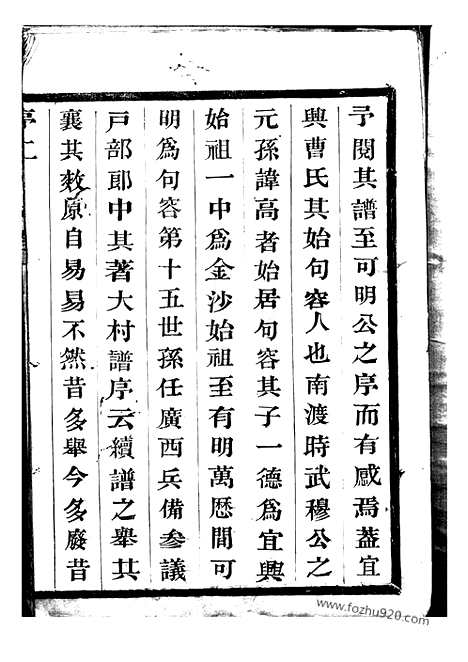 予閱其譜至可明公之序而有感焉葢宜
興曹氏其始句容人也南渡時武穆公之
元孫諱高者始居句容其子一德爲宜興
始祖一中爲金沙始祖至有明萬歷間可
明爲句容第十五世孫任廣西兵備參議
戸部郎中其著大村譜序云續譜之舉其
襄其敘原自易易不然昔多舉今多廢昔
序二
www.fozhu920.com